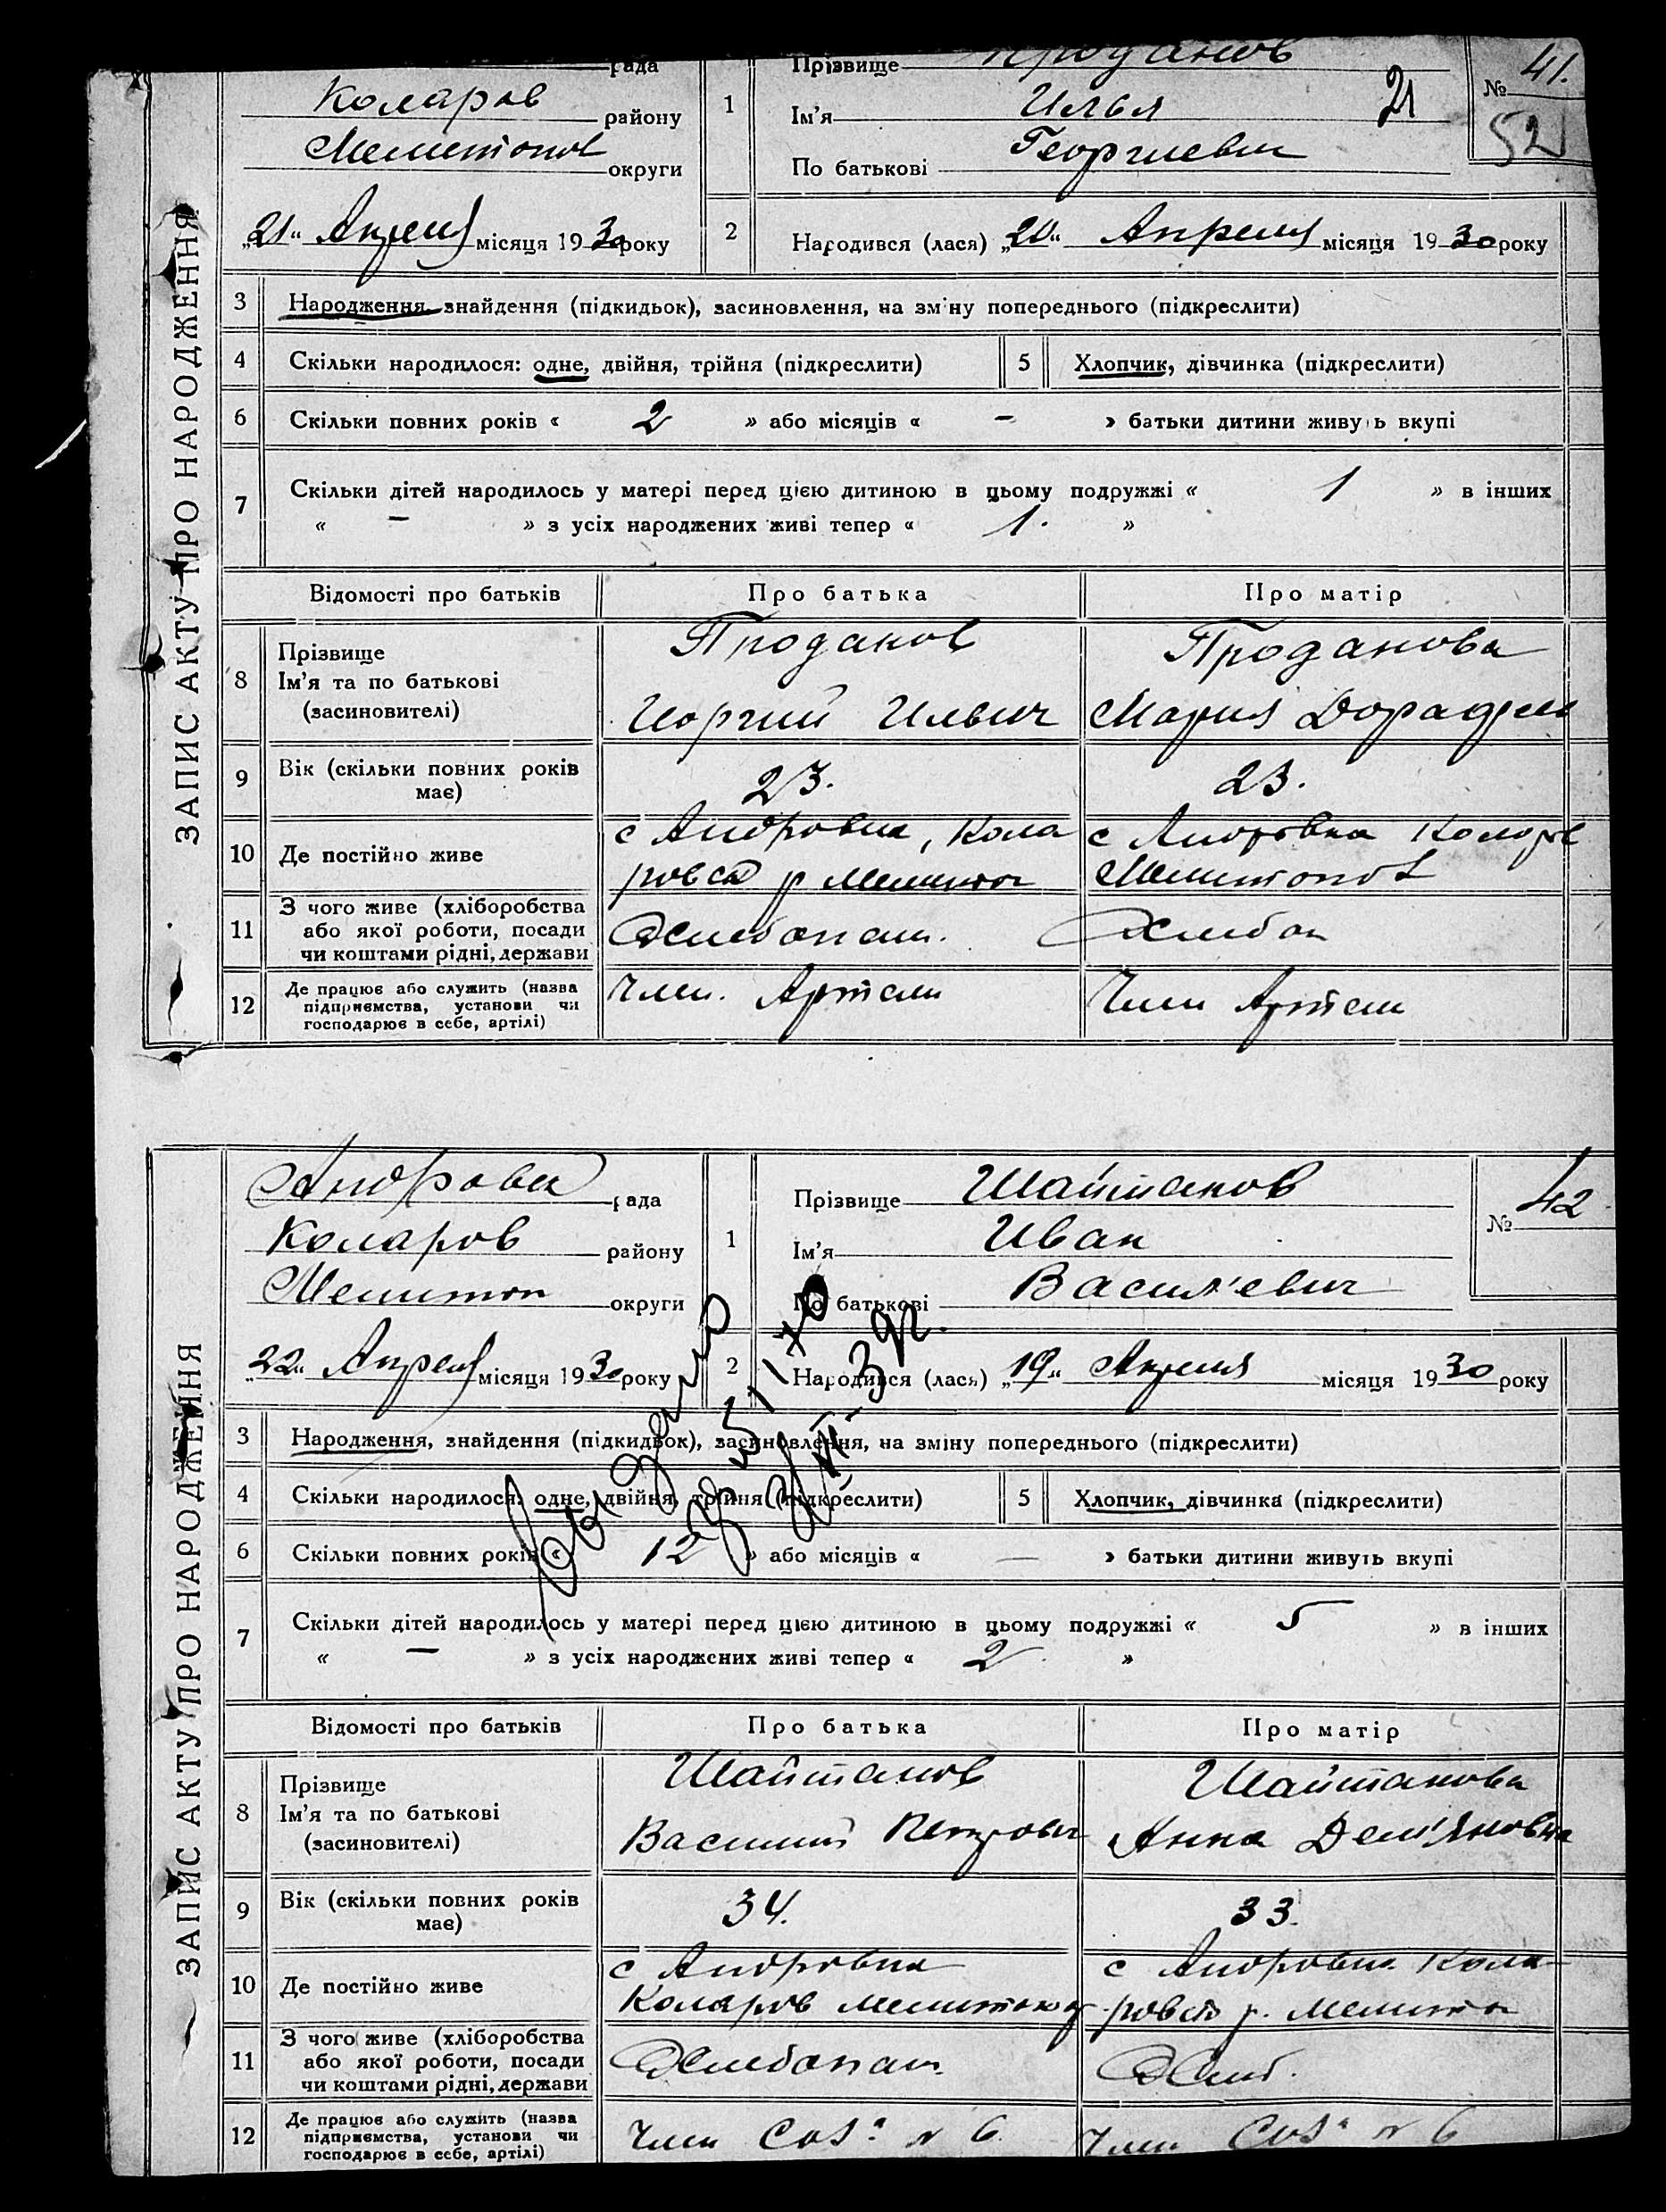 ЗАПИС АКТУ ПРО НАРОДЖЕННЯ
рада
Коларов району
Мелитопол округи
„21“ Апреля місяця 1930 року
1 Прізвище Проданов
Ім'я Илья 21
По батькові Георгиевич
№ 41.
52
2 Народився (лася) „20“ Апреля місяця 1930 року
3 Народження, знайдення (підкидьок), засиновлення, на зміну попереднього (підкреслити)
4 Скільки народилося: одне, двійня, трійня (підкреслити) 5 Хлопчик, дівчинка (підкреслити)
6 Скільки повних років « 2 » або місяців « – » батьки дитини живуть вкупі
7 Скільки дітей народилось у матері перед цією дитиною в цьому подружжі « 1 » в інших
« – » з усіх народжених живі тепер « 1. »
Відомості про батьків Про батька Про матір
8 Прізвище Ім'я та по батькові (засиновителі)
Проданов Проданова
Иоргий Ильич Мария
9 Вік (скільки повних років має) 23. 23.
10 Де постійно живе
с Андровка, Кола с Андровка Коларов
р Мелитоп Мелитопол
11 З чого живе (хліборобства або якої роботи, посади чи коштами рідні, держави
Хлебопаш. Хлебоп
12 Де працює або служить (назва підприємства, установи чи господарює в себе, артілі)
Член. Артели Член Артели
ЗАПИС АКТУ ПРО НАРОДЖЕННЯ
Андровка рада
Коларов району
Мелитоп округи
„22“ Апреля місяця 1930 року
1 Прізвище Шайтанов
Ім'я Иван
По батькові Васил'евич
№ 42
2 Народився (лася) „19“ Апреля місяця 1930 року
Выдано
3 Народження, знайдення (підкидьок), засиновлення, на зміну попереднього (підкреслити)
4 Скільки народилося: одне, двійня, трійня (підкреслити) 5 Хлопчик, дівчинка (підкреслити)
6 Скільки повних років « 12 » або місяців « — » батьки дитини живуть вкупі
7 Скільки дітей народилось у матері перед цією дитиною в цьому подружжі « 5 » в інших
« – » з усіх народжених живі тепер « 2 »
Відомості про батьків Про батька Про матір
8 Прізвище Ім'я та по батькові (засиновителі)
Шайтанов Шайтанова
Василий Петрович Анна Дем'яновна
9 Вік (скільки повних років має) 34. 33.
10 Де постійно живе
с Андровка с Андровка Кола-
Коларов Мелитопол р. Мелитоп
11 З чого живе (хліборобства або якої роботи, посади чи коштами рідні, держави
Хлебопаш. Хлеб.
12 Де працює або служить (назва підприємства, установи чи господарює в себе, артілі)
Член № 6. Член № 6